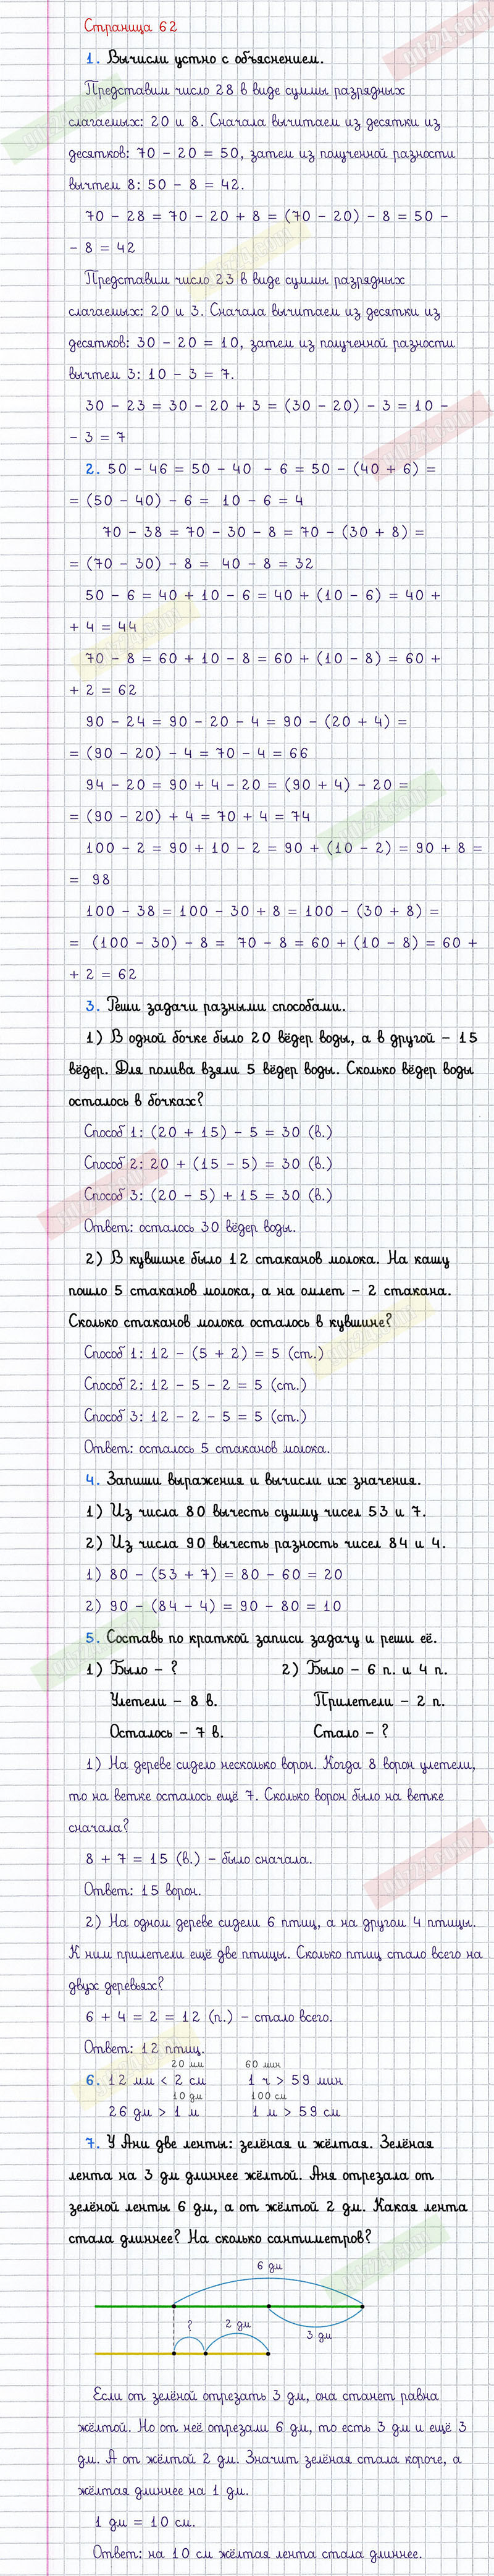 Страница 62
1. Вычисли устно с объяснением.
Представим число 28 в виде суммы разрядных
слагаемых: 20 и 8. Сначала вычитаем из десятки из
десятков: 70 - 20 = 50, затем из полученной разности
вычтем 8: 50 - 8 = 42.
70 - 28 = 70 - 20 + 8 = (70 - 20) - 8 = 50 -
- 8 = 42
Представим число 23 в виде суммы разрядных
слагаемых: 20 и 3. Сначала вычитаем из десятки из
десятков: 30 - 20 = 10, затем из полученной разности
вычтем 3: 10 - 3 = 7.
30 - 23 = 30 - 20 + 3 = (30 - 20) - 3 = 10 -
- 3 = 7
2. 50 - 46 = 50 - 40 - 6 = 50 - (40 + 6) =
= (50 - 40) - 6 = 10 - 6 = 4
70 - 38 = 70 - 30 - 8 = 70 - (30 + 8) =
= (70 - 30) - 8 = 40 - 8 = 32
50 - 6 = 40 + 10 - 6 = 40 + (10 - 6) = 40 +
+ 4 = 44
70 - 8 = 60 + 10 - 8 = 60 + (10 - 8) = 60 +
+ 2 = 62
90 - 24 = 90 - 20 - 4 = 90 - (20 + 4) =
= (90 - 20) - 4 = 70 - 4 = 66
94 - 20 = 90 + 4 - 20 = (90 + 4) - 20 =
= (90 - 20) + 4 = 70 + 4 = 74
100 - 2 = 90 + 10 - 2 = 90 + (10 - 2) = 90 + 8 =
= 98
100 - 38 = 100 - 30 + 8 = 100 - (30 + 8) =
= (100 - 30) - 8 = 70 - 8 = 60 + (10 - 8) = 60 +
+ 2 = 62
3. Реши задачи разными способами.
1) В одной бочке было 20 вёдер воды, а в другой - 15
вёдер. Для полива взяли 5 вёдер воды. Сколько вёдер воды
осталось в бочках?
Способ 1: (20 + 15) - 5 = 30 (в.)
Способ 2: 20 + (15 - 5) = 30 (в.)
Способ 3: (20 - 5) + 15 = 30 (в.)
Ответ: осталось 30 вёдер воды.
2) В кувшине было 12 стаканов молока. На кашу
пошло 5 стаканов молока, а на омлет - 2 стакана.
Сколько стаканов молока осталось в кувшине?
Способ 1: 12 - (5 + 2) = 5 (ст.)
Способ 2: 12 - 5 - 2 = 5 (ст.)
Способ 3: 12 - 2 - 5 = 5 (ст.)
Ответ: осталось 5 стаканов молока.
4. Запиши выражения и вычисли их значения.
1) Из числа 80 вычесть сумму чисел 53 и 7.
2) Из числа 90 вычесть разность чисел 84 и 4.
1) 80 - (53 + 7) = 80 - 60 = 20
2) 90 - (84 - 4) = 90 - 80 = 10
5. Составь по краткой записи задачу и реши её.
1) Было - ? 2) Было - 6 п. и 4 п.
Улетели - 8 в. Прилетели - 2 п.
Осталось - 7 в. Стало - ?
1) На дереве сидело несколько ворон. Когда 8 ворон улетели,
то на ветке осталось ещё 7. Сколько ворон было на ветке
сначала?
8 + 7 = 15 (в.) - было сначала.
Ответ: 15 ворон.
2) На одном дереве сидели 6 птиц, а на другом 4 птицы.
К ним прилетели ещё две птицы. Сколько птиц стало всего на
двух деревьях?
6 + 4 = 2 = 12 (п.) - стало всего.
Ответ: 12 птиц.
20 мм 60 мин
6. 12 мм < 2 см 1 ч > 59 мин
10 дм 100 см
26 дм > 1 м 1 м > 59 см
7. У Ани две ленты: зелёная и жёлтая. Зелёная
лента на 3 дм длиннее жёлтой. Аня отрезала от
зелёной ленты 6 дм, а от жёлтой 2 дм. Какая лента
стала длиннее? На сколько сантиметров?
6 дм
? 2 дм 3 дм
Если от зелёной отрезать 3 дм, она станет равна
жёлтой. Но от неё отрезали 6 дм, то есть 3 дм и ещё 3
дм. А от жёлтой 2 дм. Значит зелёная стала короче, а
жёлтая длиннее на 1 дм.
1 дм = 10 см.
Ответ: на 10 см жёлтая лента стала длиннее.